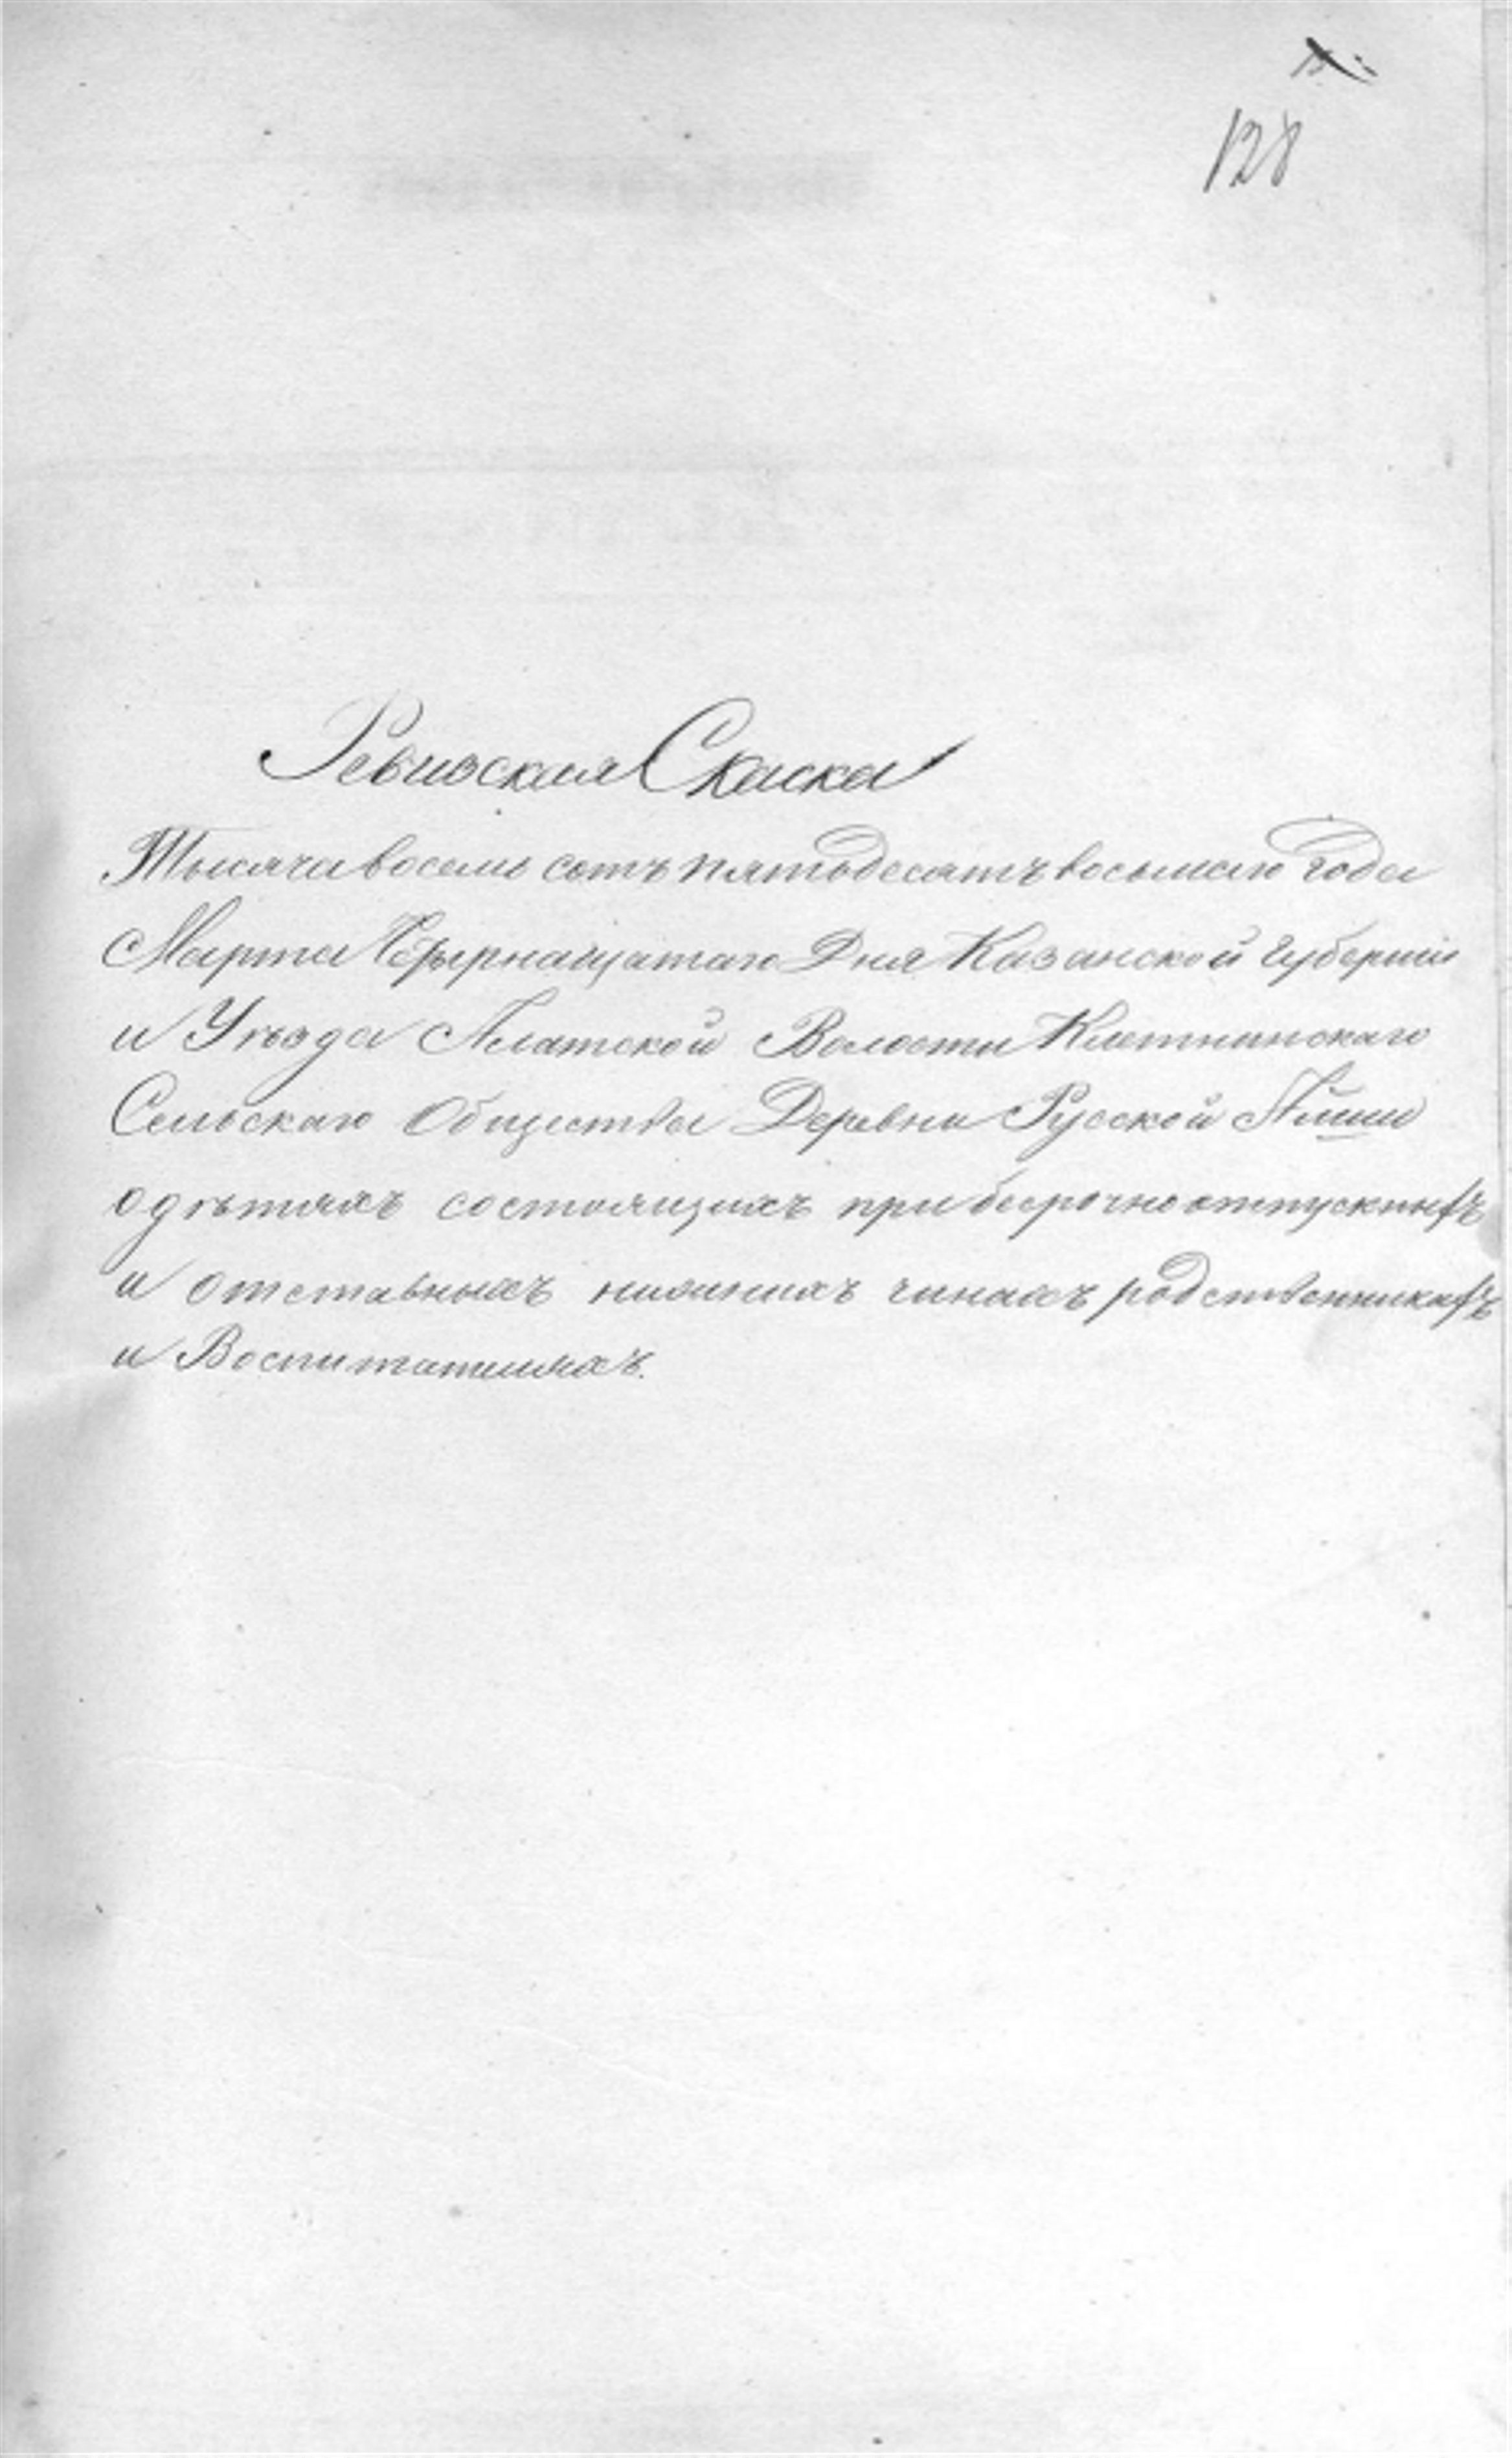 128
Ревизская Скаска
Тысяча восемь сотъ пятьдесятъ восьмаго года
Марта Четырнацатаго Дня Казанской Губерніи
и Уѣзда Алатской Волости Клетнинскаго
Сельскаго Общества Деревни Русской Аиши
о дѣтяхъ состоящихъ при бесрочноотпускныхъ
и отставныхъ нижнихъ чинахъ родственникахъ
и Воспитателяхъ.